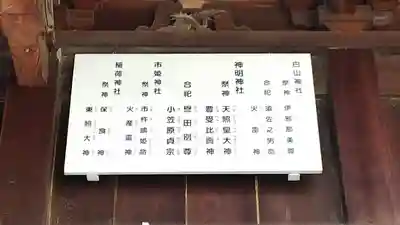 白山神社
祭神 伊邪那美尊
合祀 建佐之男命
火雷神
神明神社
祭神 天照皇大神
豊受比売神
合祀 誉田別尊
小笠原貞宗
市姫神社
祭神 市杵嶋姫命
火産霊神
稲荷神社
祭神 保食神
東照大神